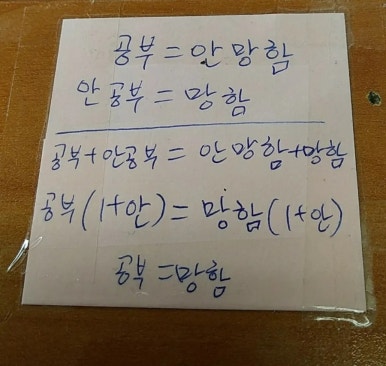 공부 = 안 망함
안 공부 = 망함
공부+안공부 = 안 망함+망함
공부(1+안) = 망함(1+안)
공부 = 망함